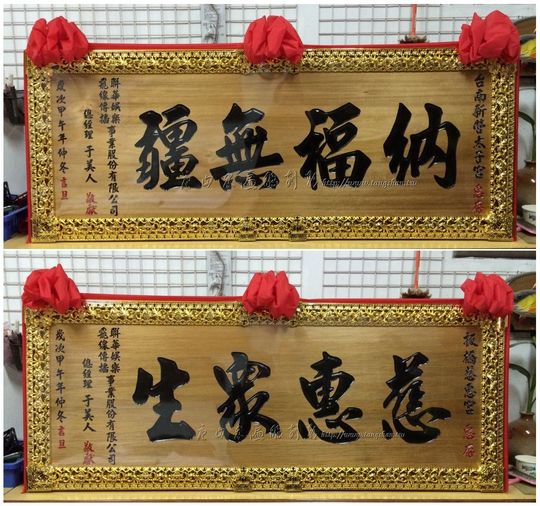 台南新營太子宮 惠存
納福無疆
聯華娛樂
飛像傳播
事業股份有限公司
總經理 于美人 敬獻
歲次甲午年仲冬吉旦
http://www.tangshan.tw
板橋慈惠宮 惠存
慈惠眾生
聯華娛樂
飛像傳播
事業股份有限公司
總經理 于美人 敬獻
歲次甲午年仲冬吉旦
http://www.tangshan.tw